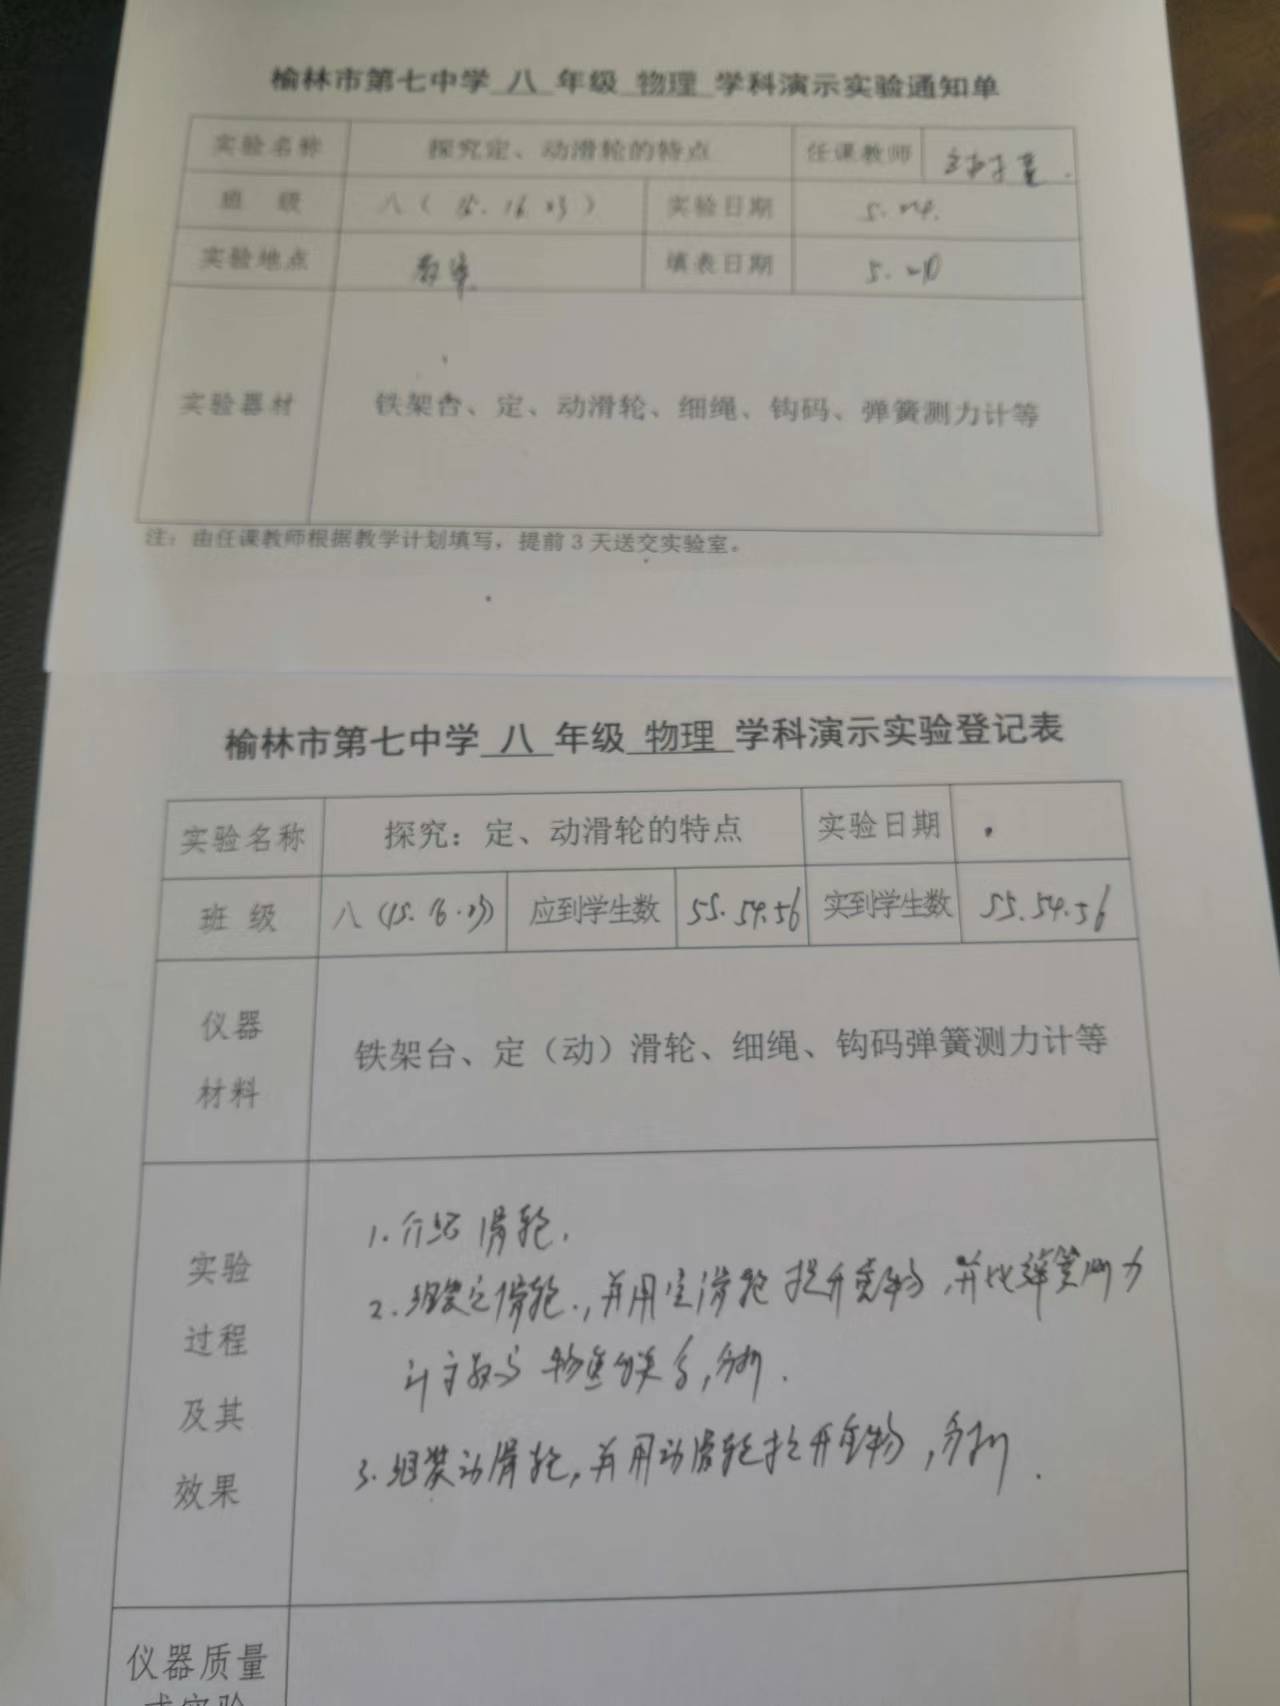 榆林市第七中学 八 年级 物理 学科演示实验通知单
实验名称 探究定、动滑轮的特点 任课教师
班 级 八（15.16.23） 实验日期 5.24.
实验地点 教室 填表日期 5.20
实验器材 铁架台、定、动滑轮、细绳、钩码、弹簧测力计等
注：由任课教师根据教学计划填写，提前3天送交实验室。
榆林市第七中学 八 年级 物理 学科演示实验登记表
实验名称 探究：定、动滑轮的特点 实验日期
班 级 八（15.16.23） 应到学生数 55.54.56 实到学生数 55.54.56
仪器
材料
铁架台、定（动）滑轮、细绳、钩码弹簧测力计等
实验
过程
及其
效果
1.介绍滑轮.
2.组装定滑轮.，并用定滑轮提升重物，并比弹簧测力
计示数与物重关系，分析.
3.组装动滑轮，并用动滑轮提升重物，分析.
仪器质量
或实验